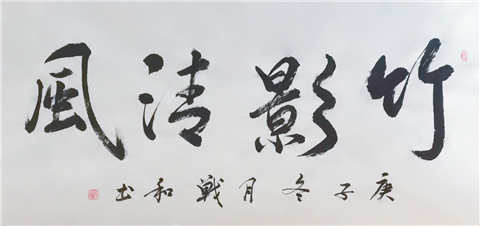 竹影清風
庚子冬月戰和书